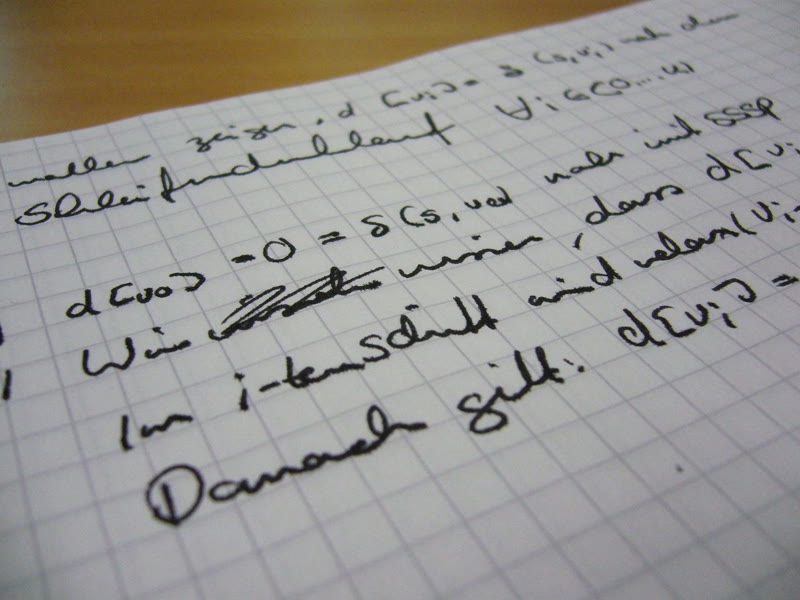 wollen zeigen, d[vi] = δ(s, vi) nach dem
Schleifendurchlauf ∀i ∈ {0...k}
d[v0] = 0 = δ(s, v0) nach init SSSP
Wir wissen, dass d[vi
Im i-ten Schritt wird relax(vi-
Danach gilt: d[vi] =